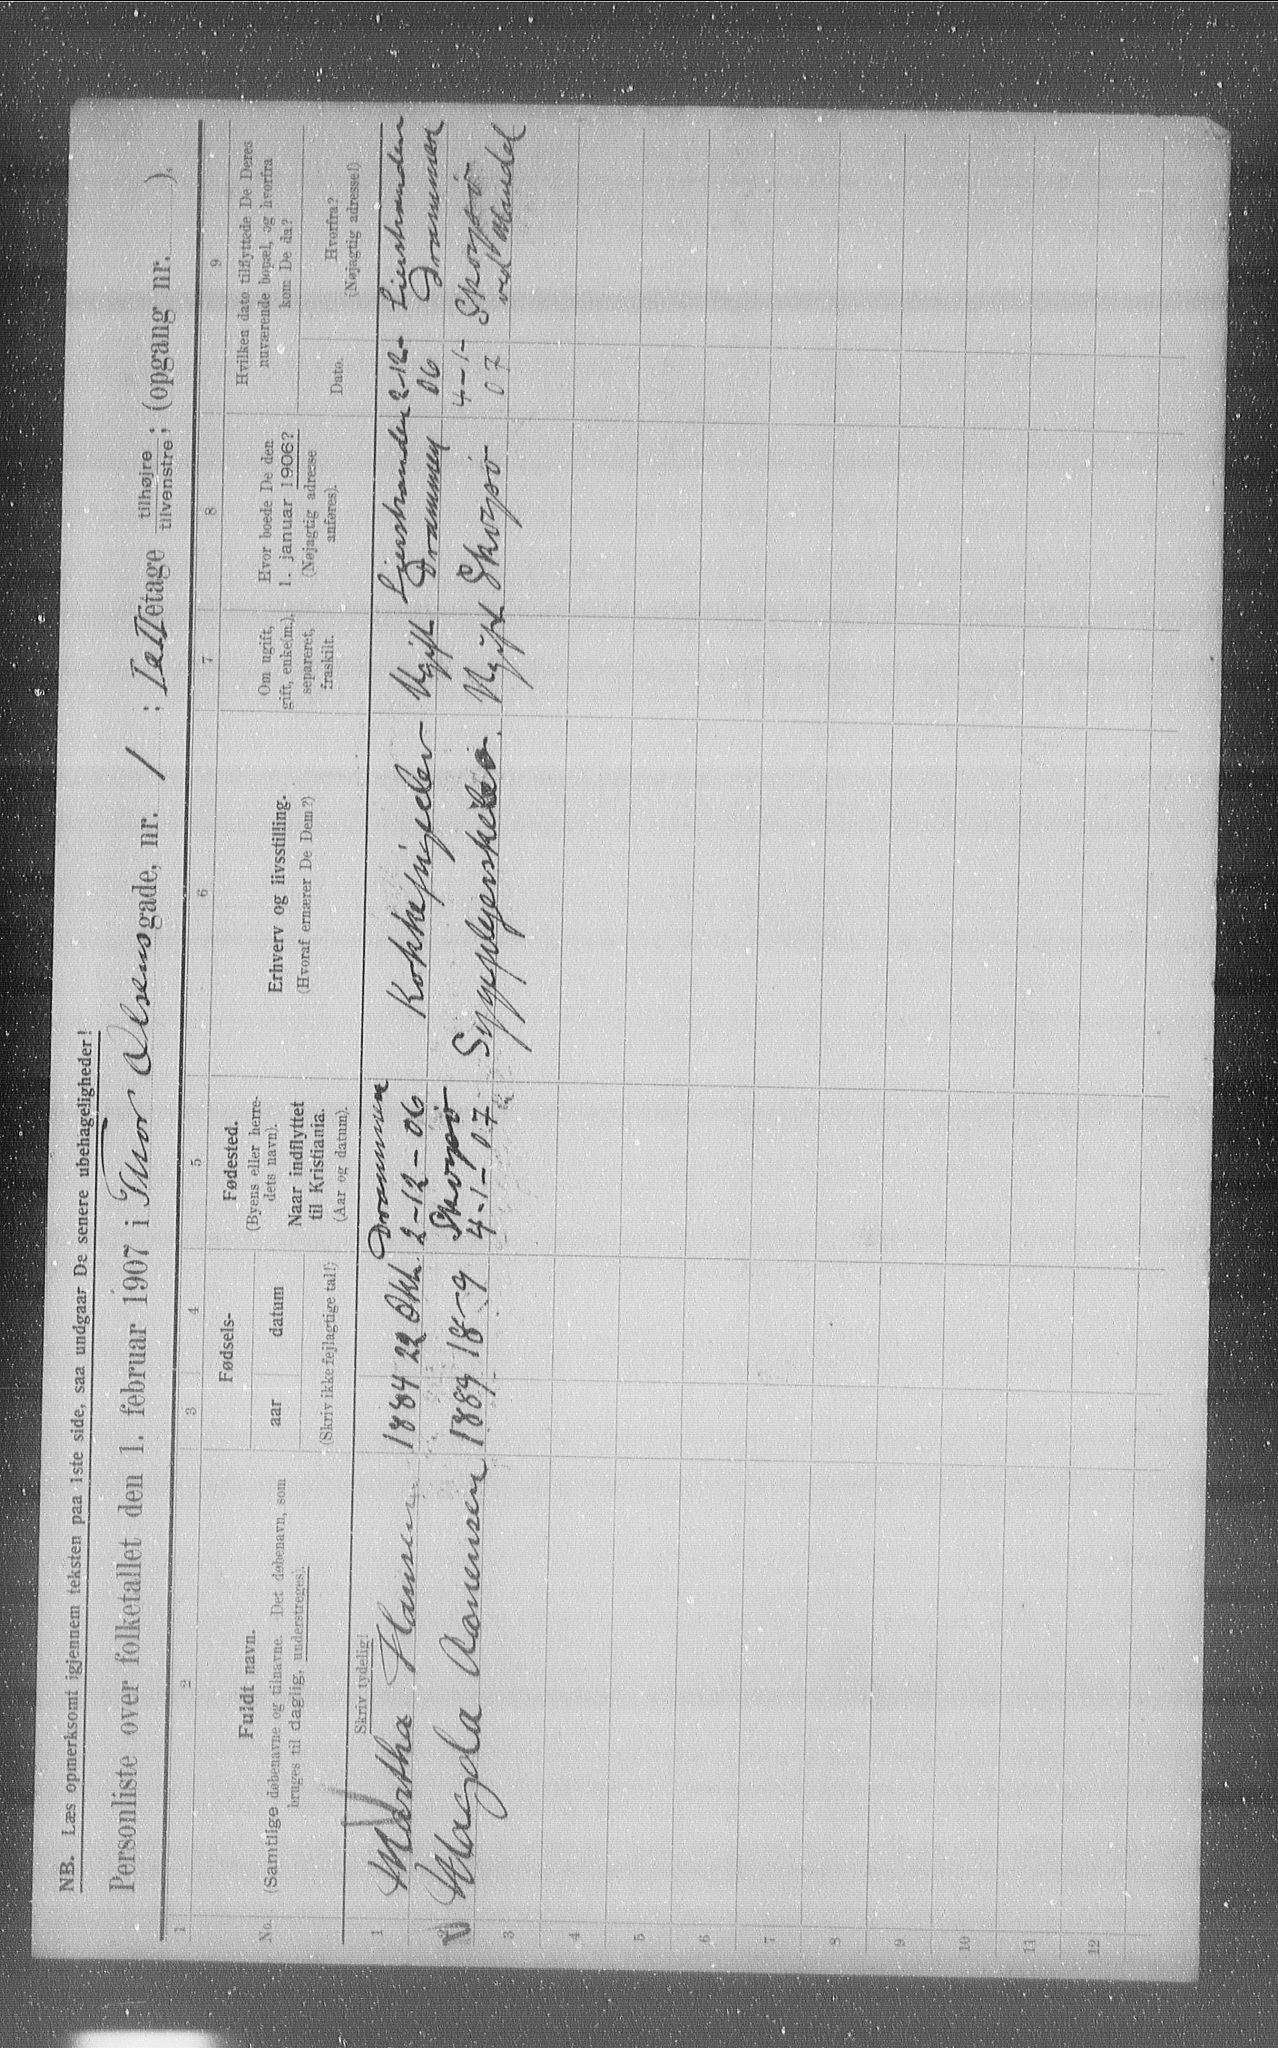 NB. Læs opmerksomt igjennem teksten paa 1ste side, saa undgaar De senere ubehageligheder!
Personliste over folketallet den 1. februar 1907 i Thor Olsens gade, nr. 1 ; I a II etage tilhøjre tilvenstre; (opgang nr. ).
1 2 3 4 5 6 7 8 9
No.
Fuldt navn.
(Samtlige døbenavne og tilnavne. Det døbenavn, som
bruges til daglig, understreges).
Skriv tydelig!
Fødsels-
aar datum
(Skriv ikke fejlagtige tal!)
Fødested.
(Byens eller herre-
dets navn).
Naar indflyttet
til Kristiania.
(Aar og datum).
Erhverv og livsstilling.
(Hvoraf ernærer De Dem?)
Om ugift,
gift, enke(m.),
separeret,
fraskilt.
Hvor boede De den
1. januar 1906?
(Nøjagtig adresse
anføres).
Hvilken dato tilflyttede De Deres
nuværende bopæl, og hvorfra
kom De da?
Dato.
Hvorfra?
(Nøjagtig adresse!)
1 Martha Hansen 1884 22 Okt. Drammen 2-12-06 Kokkepige Ugift Lierstranden Drammen 2-12-06 Lierstranden Drammen
2 Magda Aanensen 1889 18-9 Skorpö 4-1-07 Sygeplejerske Ugift Skorpö 4-1-07 Skorpö ved
3
4
5
6
7
8
9
10
11
12